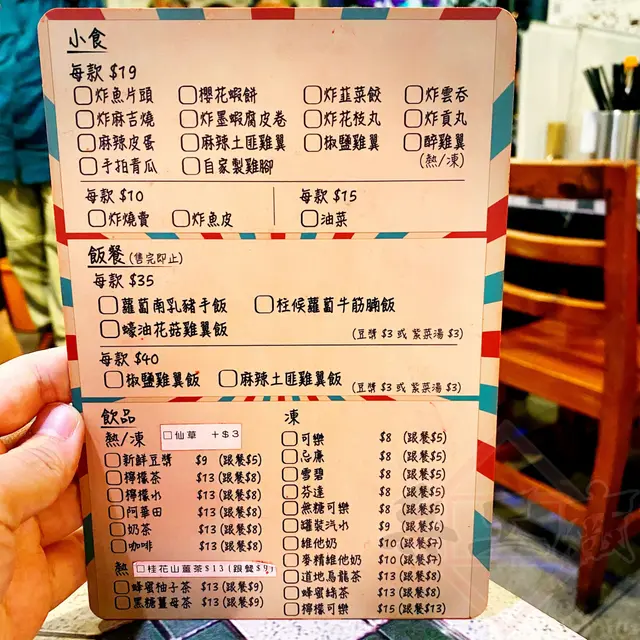 小食
每款 $19
炸魚片頭 櫻花蝦餅 炸韮菜餃 炸雲吞
炸麻吉燒 炸墨蝦腐皮卷 炸花枝丸 炸貢丸
麻辣皮蛋 麻辣土匪雞翼 椒鹽雞翼 醉雞翼
手拍青瓜 自家製雞腳 (熱/凍)
每款 $10 每款 $15
炸燒賣 炸魚皮 油菜
飯餐 (售完即止)
每款 $35
蘿蔔南乳豬手飯 柱候蘿蔔牛筋腩飯
蠔油花菇雞翼飯 (豆漿 $3 或 紫菜湯 $3)
每款 $40
椒鹽雞翼飯 麻辣土匪雞翼飯 (豆漿 $3 或 紫菜湯 $3)
飲品
熱/凍 仙草 +$3
新鮮豆漿 $9 (跟餐$5)
檸檬茶 $13 (跟餐$8)
檸檬水 $13 (跟餐$8)
阿華田 $13 (跟餐$8)
奶茶 $13 (跟餐$8)
咖啡 $13 (跟餐$8)
熱 桂花山薑茶$13(跟餐$9)
蜂蜜柚子茶 $13 (跟餐$9)
黑糖薑母茶 $13 (跟餐$9)
凍
可樂 $8 (跟餐$5)
忌廉 $8 (跟餐$5)
雪碧 $8 (跟餐$5)
芬達 $8 (跟餐$5)
無糖可樂 $8 (跟餐$5)
罐裝汽水 $9 (跟餐$6)
維他奶 $10 (跟餐$7)
麥精維他奶 $10 (跟餐$7)
道地烏龍茶 $13 (跟餐$8)
蜂蜜綠茶 $13 (跟餐$8)
檸檬可樂 $15 (跟餐$13)